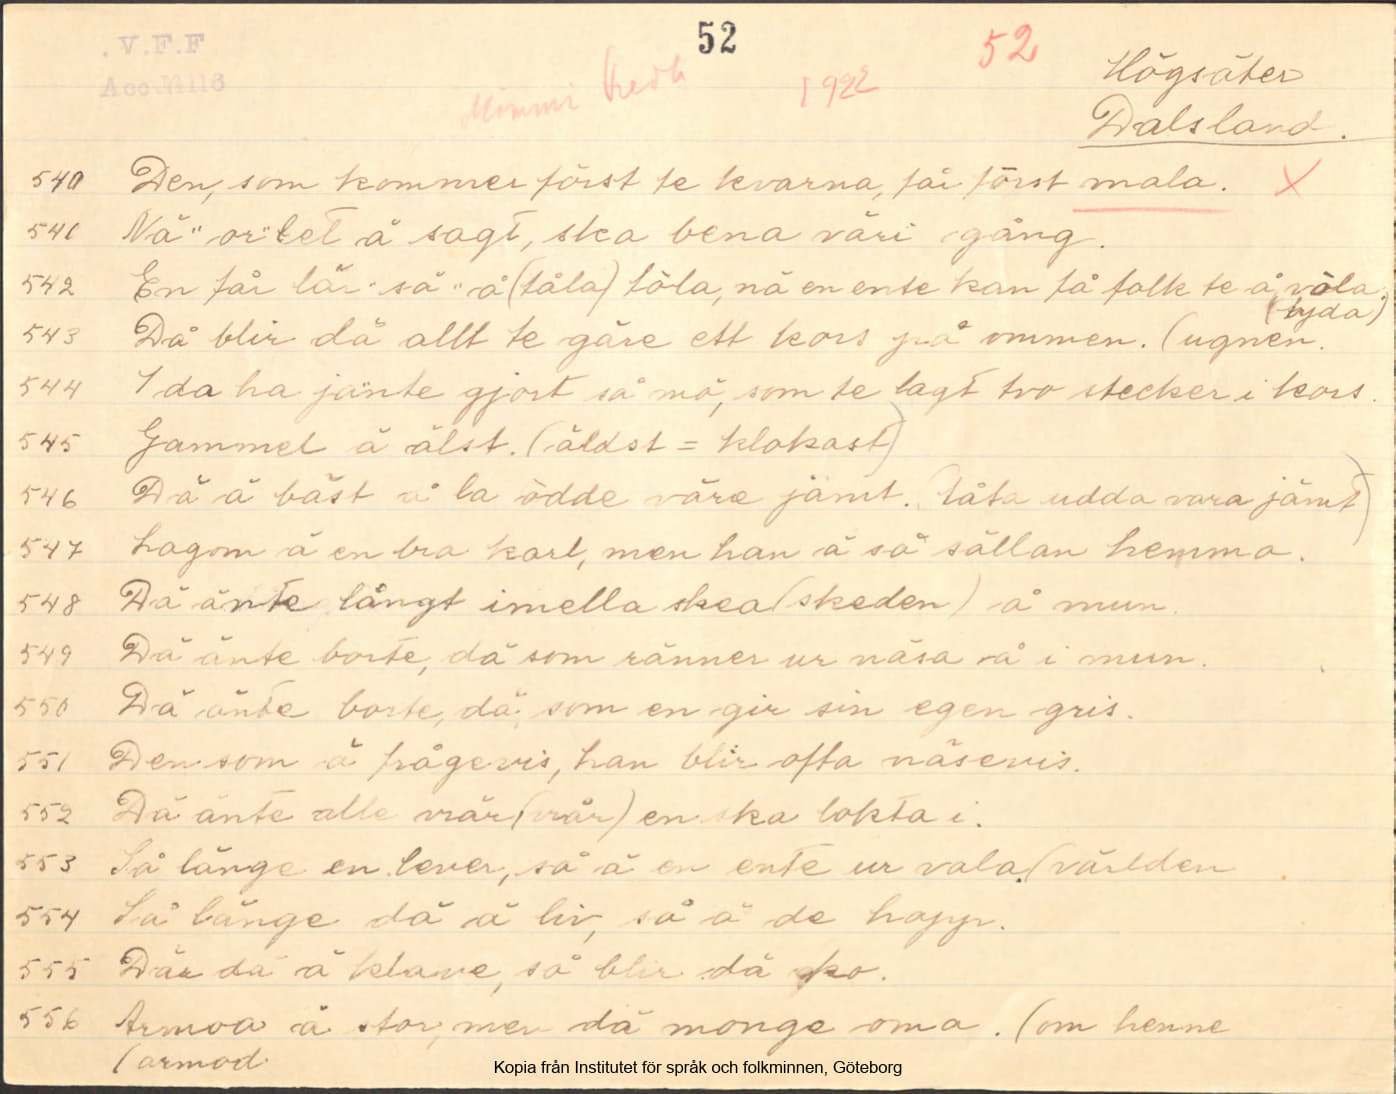 52
52
. V.F.F
Acc. N 116
1922
Högsäter
Dalsland.
540 Den, som kommer först te kvarna, får först mala. X
541 Nä" or"let ä sagt, ska bena väri gång.
542 En får lär sä å (tåla) töla, nä en ente kan få folk te å völa.
(lyda)
543 Då blir dä allt te gäre ett kors på ommen. (ugnen.
544 I da ha jänte gjort så mö, som te lagt tvo stecker i kors.
545 Gammel ä älst. (äldst = klokast)
546 Dä ä bäst å la ödde väre jämt. (låta udda vara jämt)
547 Lagom ä en bra karl, men han ä så sällan hemma.
548 Dä änte långt imella skea (skeden) å mun.
549 Dä änte borte, dä som ränner ur näsa å i mun.
550 Dä änte borte, dä, som en gir sin egen gris.
551 Den som ä frågevis, han blir ofta näsevis.
552 Dä änte alle vrär (vrår) en ska lokta i.
553 Så länge en lever, så ä en ente ur vala. (världen
554 Så länge dä ä liv, så ä de hopp.
555 Där dä ä klave, så blir dä ko.
556 Armoa ä stor, men dä monge oma. (om henne
(armod
Kopia från Institutet för språk och folkminnen, Göteborg